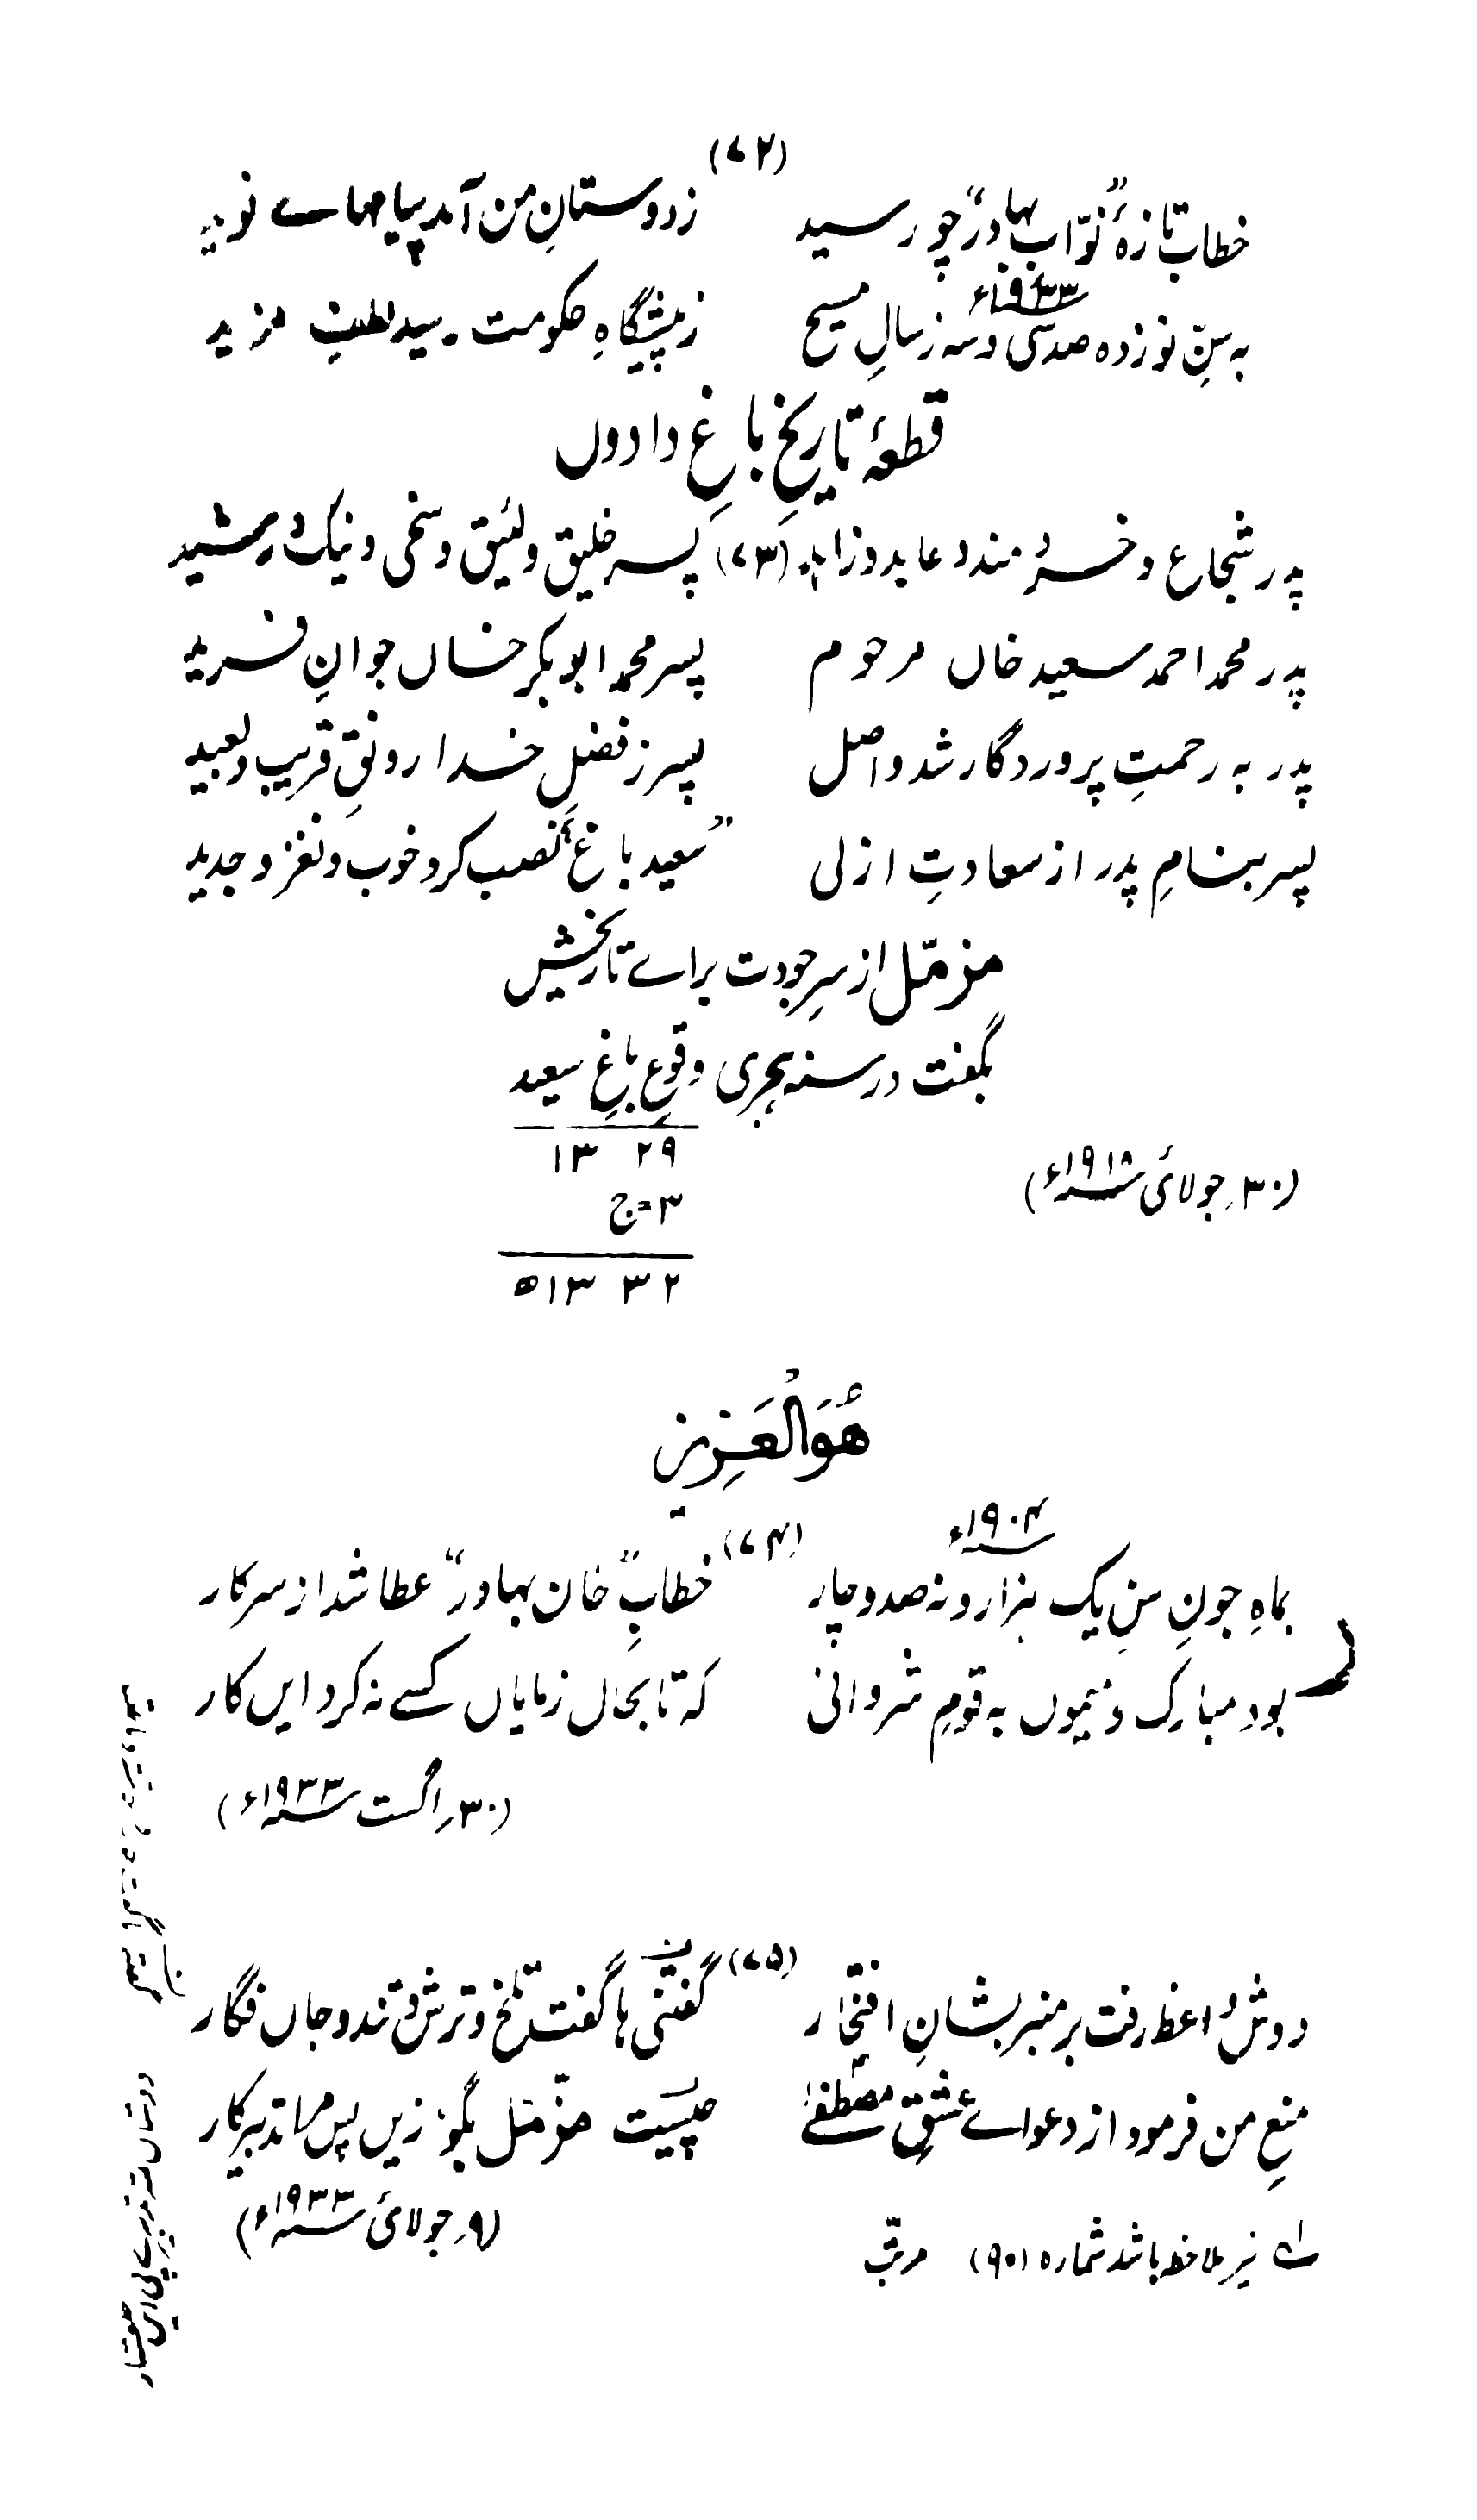 (۷۲)
خطابِ تازہ "نوّاب بہادر" چو رسید زدوستانِ من آمد پیامہاے نوید
۱۹۳۳ء
بہ سِنِّ نوزدہ صدسی وسہ زسالِ مسیح زپیشگاہِ حکومت رسید لطفِ مزید
قطعۂ تاریخِ باغِ دادوں
(۷۳)
پدر شجاع و خرد مند و عابد و زاہد پسر خلیق و لئیق و سخی و نیک و رشید
پدر محمد احمد سعید خاں مرحوم پسر محمد ابوبکر خاں جوانِ فرید
پدر بہ رحمتِ پروردگار شد واصل پسر ز فضلِ خدا رونقِ قریب و بعید
پسر بنامِ پدر از سعادتِ ازلی "سعید باغ" نصب کرد خوب و نغز و جدید
مزمّل از سرِ جودت براے تاریخش
بگفت در سنہ ہجری وقوعِ باغِ سعید
۱۳۲۹
۳ = ج
۱۳۳۲ھ
(۳۰؍ جولائی ۱۹۱۸ء)
ھُوَالْعَزِیز
(۷۴)
۱۹۰۴ء
بماہِ جونِ سنِ یک ہزار و نہ صد و چار خطابِ "خان بہادر" عطا شد از سرکار
بود مبارک و میموں بہ قومِ شروانی کہ تا بحال زمایاں کسے نہ کرد ایں کار
(۳۰؍ اگست ۱۹۳۳ء)
(۷۵)
دوش واعظ رفت بر منبر بشانِ افتخار گفتنی ہا گفت تلخ و ترش و تند و جاں فگار
منعِ من فرمود از دعواے عشقِ مصطفےٰ چیست مزمّل بگو زیں پس ترا تدبیرِ کار
(۹؍ جولائی ۱۹۳۳ء)
نیز ملاحظہ باشد شمارہ (۹۰) مرتّب